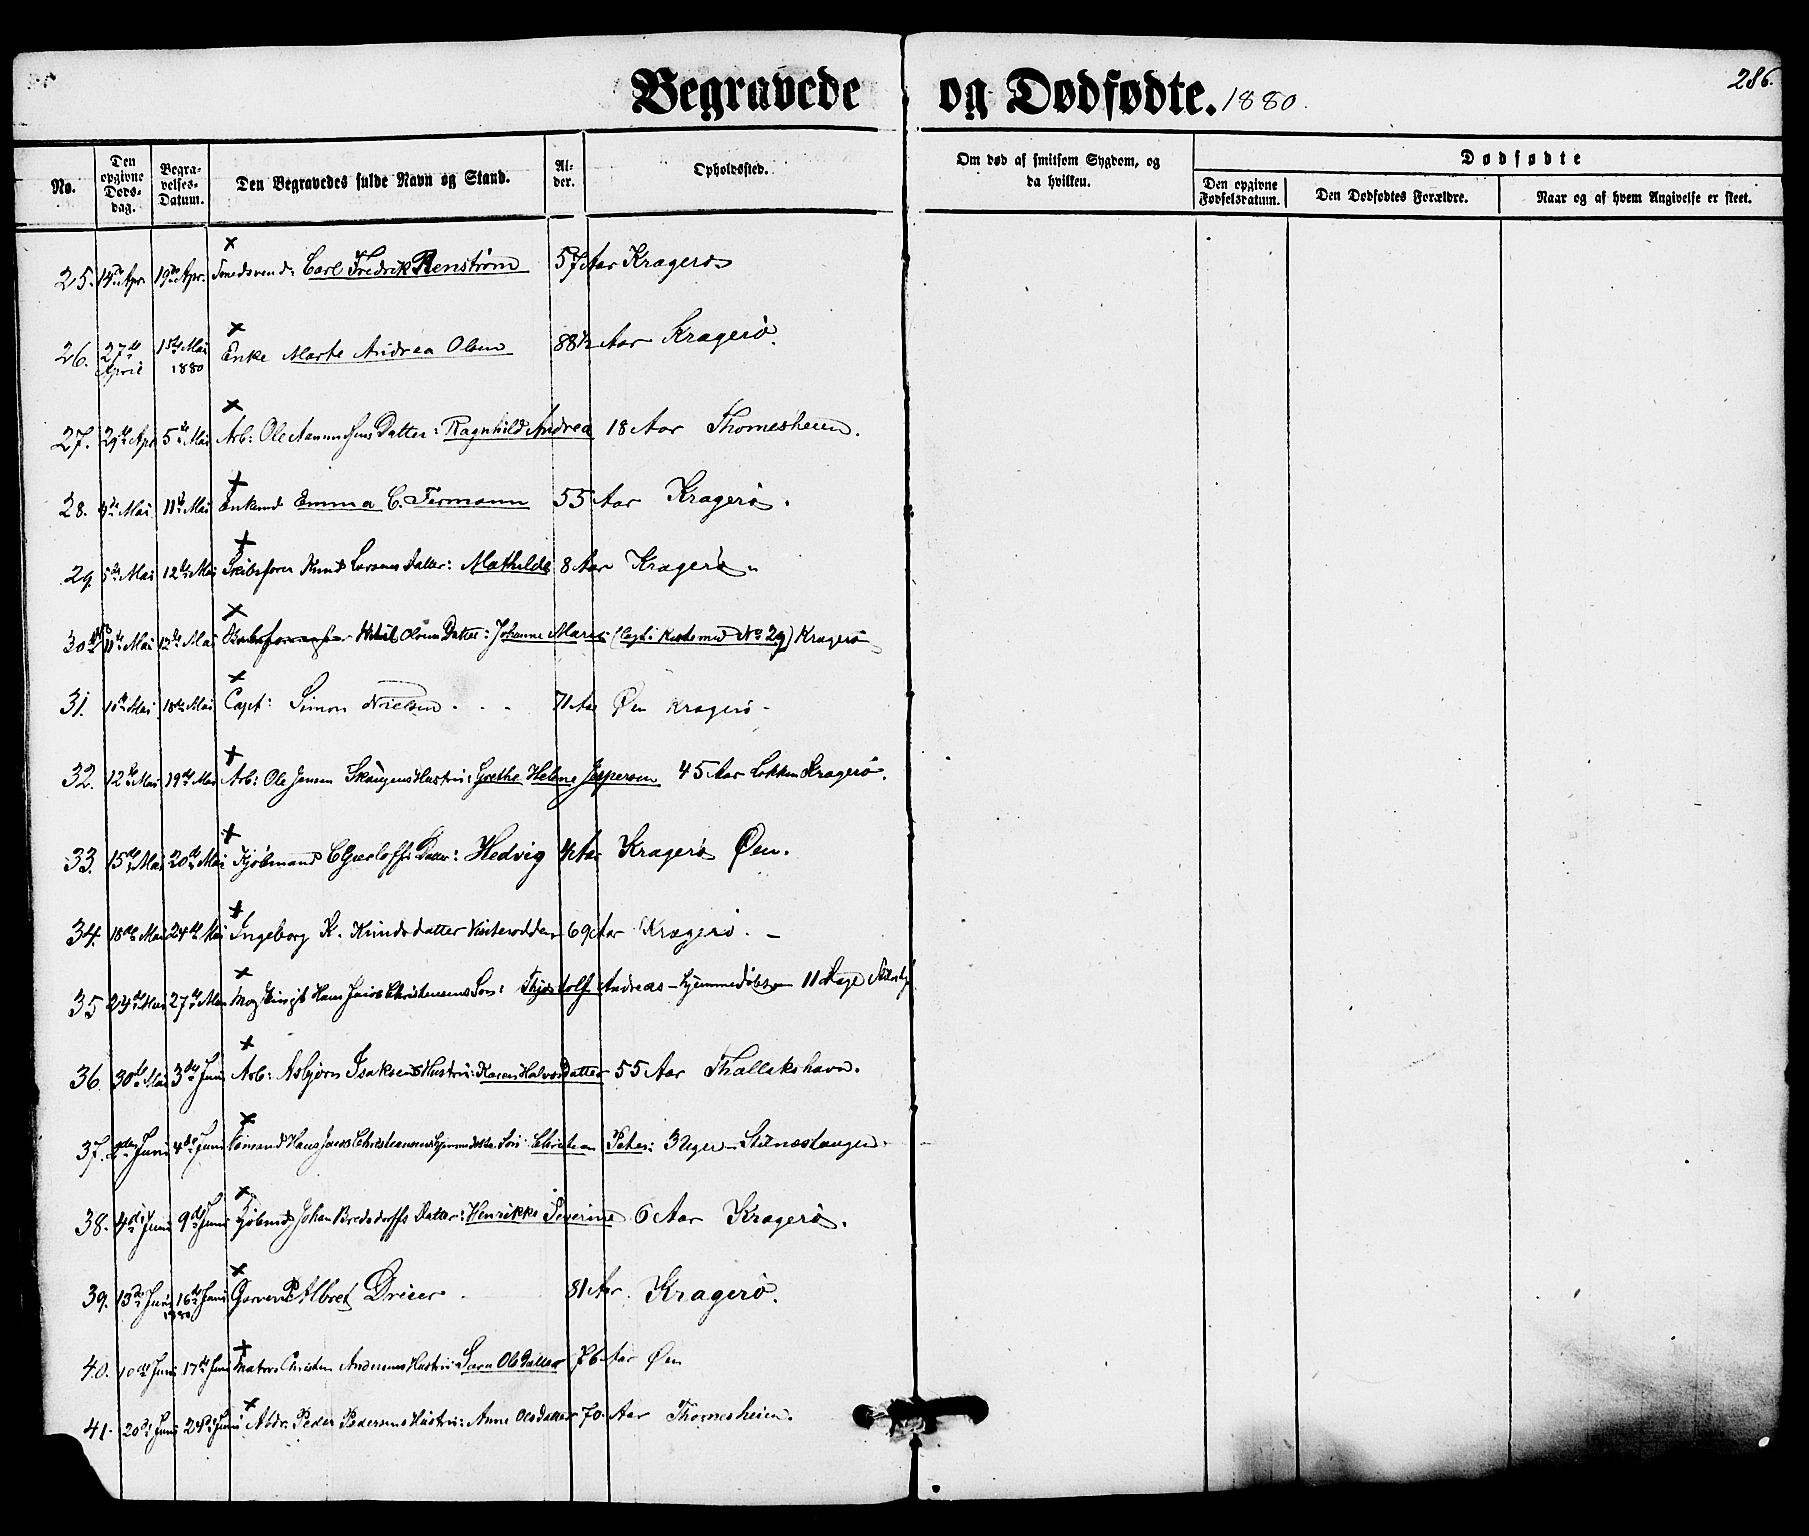 Begravede og Dødfødte. 1880. 286.
No. Den opgivne Døds-dag. Begra-velses-Datum. Den Begravedes fulde Navn og Stand. Al-der. Opholdssted. Om død af smitsom Sygdom, og da hvilken. Dødfødte
Den opgivne Fødselsdatum. Den Dødfødtes Forældre. Naar og af hvem Angivelse er skeet.
25. 14de Apr. 19de Apr. Carl Fredrik Renstrøm 57 Aar Kragerø
26. 27de April 1ste Mai 1880 Enke Marte Andrea Olsen 88½ Aar Kragerø.
27. 29de Apr 5te Mai Arb: Ole Datter: Ragnhild Andrea 18 Aar Thomesheien.
28. 4de Mai 11te Mai Enkemd Emma C. Termann 55 Aar Kragerø.
29. 5te Mai 12te Mai Skibsfører Knud Larsens Datter: Mathilde 8 Aar Kragerø
30. 11te Mai 12te Mai Olsens Datter: Johanne Marie (lagt i Kiste med No 29) Kragerø
31. 10de Mai 18de Mai Capt: Simon Nielsen 71 Aar Øen Kragerø
32. 12te Mai 19de Mai Arb: Ole Jensen Skougens Hustru: Grethe Helene Jespersen 45 Aar Løkken Kragerø.
33. 15de Mai 20de Mai Kjøbmand Datter: Hedvig ½ Aar Kragerø Øen.
34. 18de Mai 24de Mai Ingeborg K. Knudsdatter 69 Aar Kragerø.
35 24de Mai 27de Mai Hans Jacob Christensens Søn: Andreas - hjemmedøbt 11 Dage
36. 30de Mai 3die Juni Arb: Asbjørn Isaksens Hustru: Karen Halvorsdatter 55 Aar Thallakshavn.
37. 2den Juni 4de Juni Hans Jacob Christiansens hjemmedøbte Søn: Christian Peter: 3 Uger - Stilnestangen
38. 4de Juni 9de Juni Kjøbmd Johan Bredsdorffs Datter: Henrikke Severine 6 Aar Kragerø.
39. 13de Juni 16de Juni 1880 Garver P Albret Dreier 81 Aar. Kragerø.
40. 10de Juni 17de Juni Matros Christen Andersens Hustru: Sara Olsdatter 76 Aar Øen
41. 20de Juni 24de Juni Arbdr. Peder Pedersens Hustru: Anne Olsdatter 70 Aar Thomesheien.